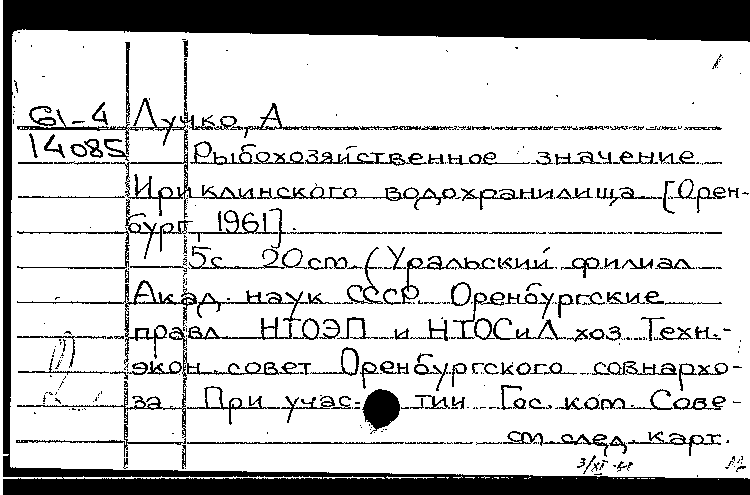 61-4 Лучко, А
14085 Рыбохозяйственное значение
Ириклинского водохранилища. [Орен-
бург, 1961].
5с 20см. (Уральский филиал
Акад. наук СССР Оренбургские
правл НТОЭП и НТОСиЛ хоз. Техн.-
экон. совет Оренбургского совнархо-
за. При учас- тии Гос. ком. Сове-
см. след. карт.